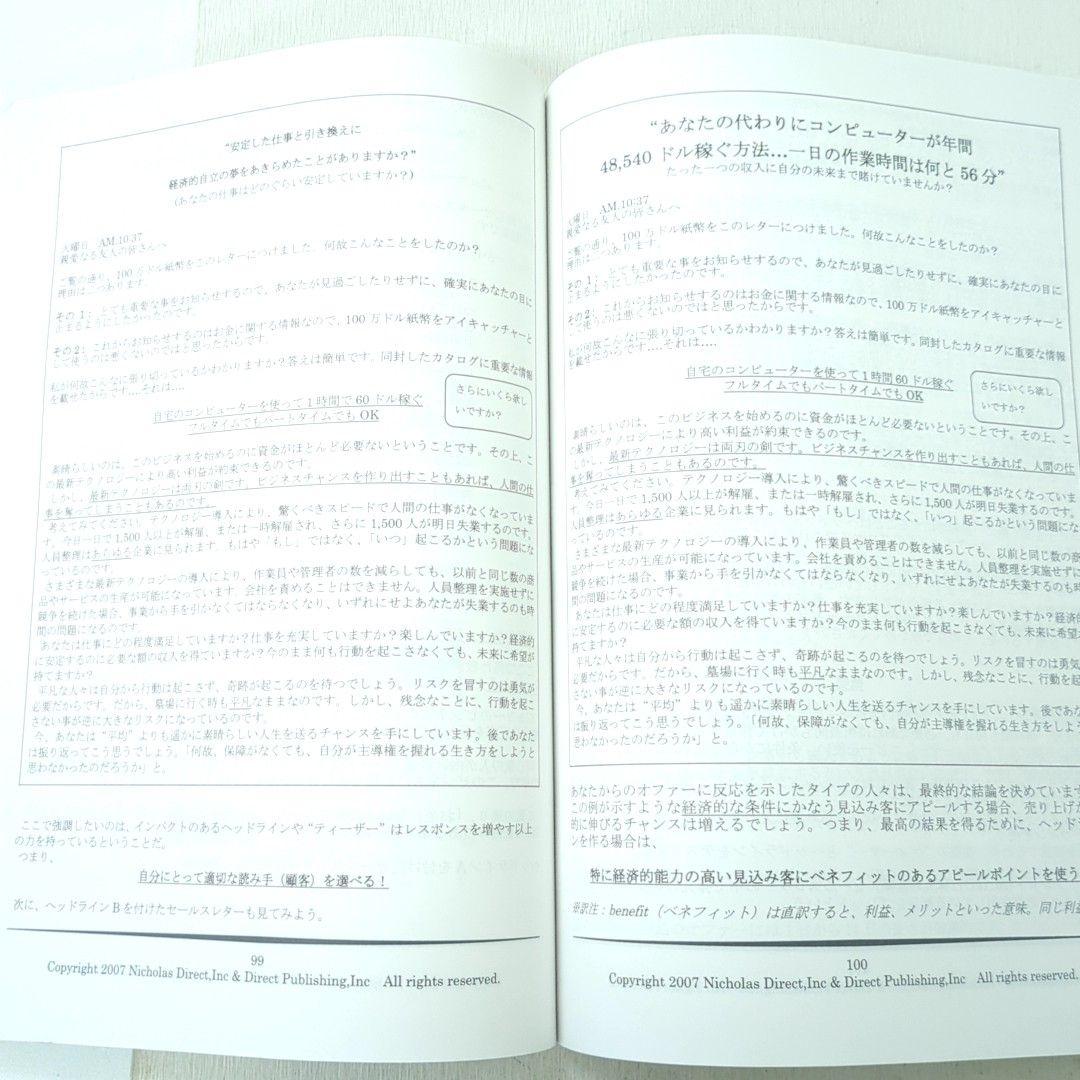 “安定した仕事と引き換えに
経済的自立の夢をあきらめたことがありますか？”
（あなたの仕事はどのぐらい安定していますか？）
火曜日　AM.10:37
親愛なる友人の皆さんへ
ご覧の通り、100万ドル紙幣をこのレターにつけました。何故こんなことをしたのか？
理由は二つあります。
その1：とても重要な事をお知らせするので、あなたが見過ごしたりせずに、確実にあなたの目に
止まるようにしたかったのです。
その2：これからお知らせするのはお金に関する情報なので、100万ドル紙幣をアイキャッチャーと
して使うのは悪くないのではと思ったからです。
私が何故こんなに張り切っているかわかりますか？答えは簡単です。同封したカタログに重要な情報
を載せたからです‥‥それは‥‥
自宅のコンピューターを使って1時間で60ドル稼ぐ
フルタイムでもパートタイムでもOK
さらにいくら欲し
いですか？
素晴らしいのは、このビジネスを始めるのに資金がほとんど必要ないということです。その上、こ
の最新テクノロジーにより高い利益が約束できるのです。
しかし、最新テクノロジーは両刃の剣です。ビジネスチャンスを作り出すこともあれば、人間の仕
事を奪ってしまうこともあるのです。
考えてみてください。テクノロジー導入により、驚くべきスピードで人間の仕事がなくなっていま
す。今日一日で1,500人以上が解雇、または一時解雇され、さらに1,500人が明日失業するのです。
人員整理はあらゆる企業に見られます。もはや「もし」ではなく、「いつ」起こるかという問題にな
っているのです。
さまざまな最新テクノロジーの導入により、作業員や管理者の数を減らしても、以前と同じ数の商
品やサービスの生産が可能になっています。会社を責めることはできません。人員整理を実施せずに
競争を続けた場合、事業から手を引かなくてはならなくなり、いずれにせよあなたが失業するのも時
間の問題になるのです。
あなたは仕事にどの程度満足していますか？仕事を充実していますか？楽しんでいますか？経済的
に安定するのに必要な額の収入を得ていますか？今のまま何も行動を起こさなくても、未来に希望が
持てますか？
平凡な人々は自分から行動は起こさず、奇跡が起こるのを待つでしょう。リスクを冒すのは勇気が
必要だからです。だから、墓場に行く時も平凡なままなのです。しかし、残念なことに、行動を起こ
さない事が逆に大きなリスクになっているのです。
今、あなたは“平均”よりも遥かに素晴らしい人生を送るチャンスを手にしています。後であなた
は振り返ってこう思うでしょう。「何故、保障がなくても、自分が主導権を握れる生き方をしようと
思わなかったのだろうか」と。
ここで強調したいのは、インパクトのあるヘッドラインや“ティーザー”はレスポンスを増やす以上
の力を持っているということだ。
つまり、
自分にとって適切な読み手（顧客）を選べる！
次に、ヘッドラインBを付けたセールスレターも見てみよう。
99
Copyright 2007 Nicholas Direct,Inc & Direct Publishing,Inc　All rights reserved.
“あなたの代わりにコンピューターが年間
48,540 ドル稼ぐ方法…一日の作業時間は何と56分”
たった一つの収入に自分の未来まで賭けていませんか？
火曜日　AM.10:37
親愛なる友人の皆さんへ
ご覧の通り、100万ドル紙幣をこのレターにつけました。何故こんなことをしたのか？
理由は二つあります。
その1：とても重要な事をお知らせするので、あなたが見過ごしたりせずに、確実にあなたの目に
止まるようにしたかったのです。
その2：これからお知らせするのはお金に関する情報なので、100万ドル紙幣をアイキャッチャーと
して使うのは悪くないのではと思ったからです。
私が何故こんなに張り切っているかわかりますか？答えは簡単です。同封したカタログに重要な情報
を載せたからです‥‥それは‥‥
自宅のコンピューターを使って1時間60ドル稼ぐ
フルタイムでもパートタイムでもOK
さらにいくら欲し
いですか？
素晴らしいのは、このビジネスを始めるのに資金がほとんど必要ないということです。その上、こ
の最新テクノロジーにより高い利益が約束できるのです。
しかし、最新テクノロジーは両刃の剣です。ビジネスチャンスを作り出すこともあれば、人間の仕
事を奪ってしまうこともあるのです。
考えてみてください。テクノロジー導入により、驚くべきスピードで人間の仕事がなくなっていま
す。今日一日で1,500人以上が解雇、または一時解雇され、さらに1,500人が明日失業するのです。
人員整理はあらゆる企業に見られます。もはや「もし」ではなく、「いつ」起こるかという問題にな
っているのです。
さまざまな最新テクノロジーの導入により、作業員や管理者の数を減らしても、以前と同じ数の
品やサービスの生産が可能になっています。会社を責めることはできません。人員整理を実施せずに
競争を続けた場合、事業から手を引かなくてはならなくなり、いずれにせよあなたが失業するのも時
間の問題になるのです。
あなたは仕事にどの程度満足していますか？仕事を充実していますか？楽しんでいますか？経済
に安定するのに必要な額の収入を得ていますか？今のまま何も行動を起こさなくても、未来に希望
持てますか？
平凡な人々は自分から行動は起こさず、奇跡が起こるのを待つでしょう。リスクを冒すのは勇気
必要だからです。だから、墓場に行く時も平凡なままなのです。しかし、残念なことに、行動を起
さない事が逆に大きなリスクになっているのです。
今、あなたは“平均”よりも遥かに素晴らしい人生を送るチャンスを手にしています。後であな
は振り返ってこう思うでしょう。「何故、保障がなくても、自分が主導権を握れる生き方をしよう
思わなかったのだろうか」と。
あなたからのオファーに反応を示したタイプの人々は、最終的な結論を決めています
この例が示すような経済的な条件にかなう見込み客にアピールする場合、売り上げが
的に伸びるチャンスは増えるでしょう。つまり、最高の結果を得るために、ヘッド
ンを作る場合は、
特に経済的能力の高い見込み客にベネフィットのあるアピールポイントを使う
※訳注：benefit（ベネフィット）は直訳すると、利益、メリットといった意味。同じ利
100
Copyright 2007 Nicholas Direct,Inc & Direct Publishing,Inc　All rights reserved.